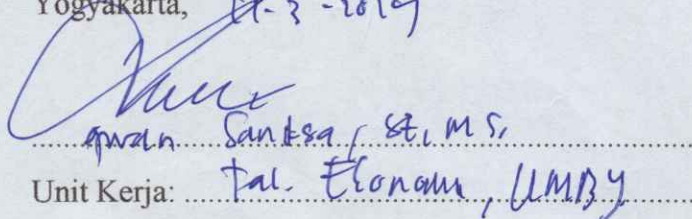 Yogyakarta, 11-3-2019
Awan Santosa, SE, M.S,
Unit Kerja: Fak. Ekonomi, UMBY